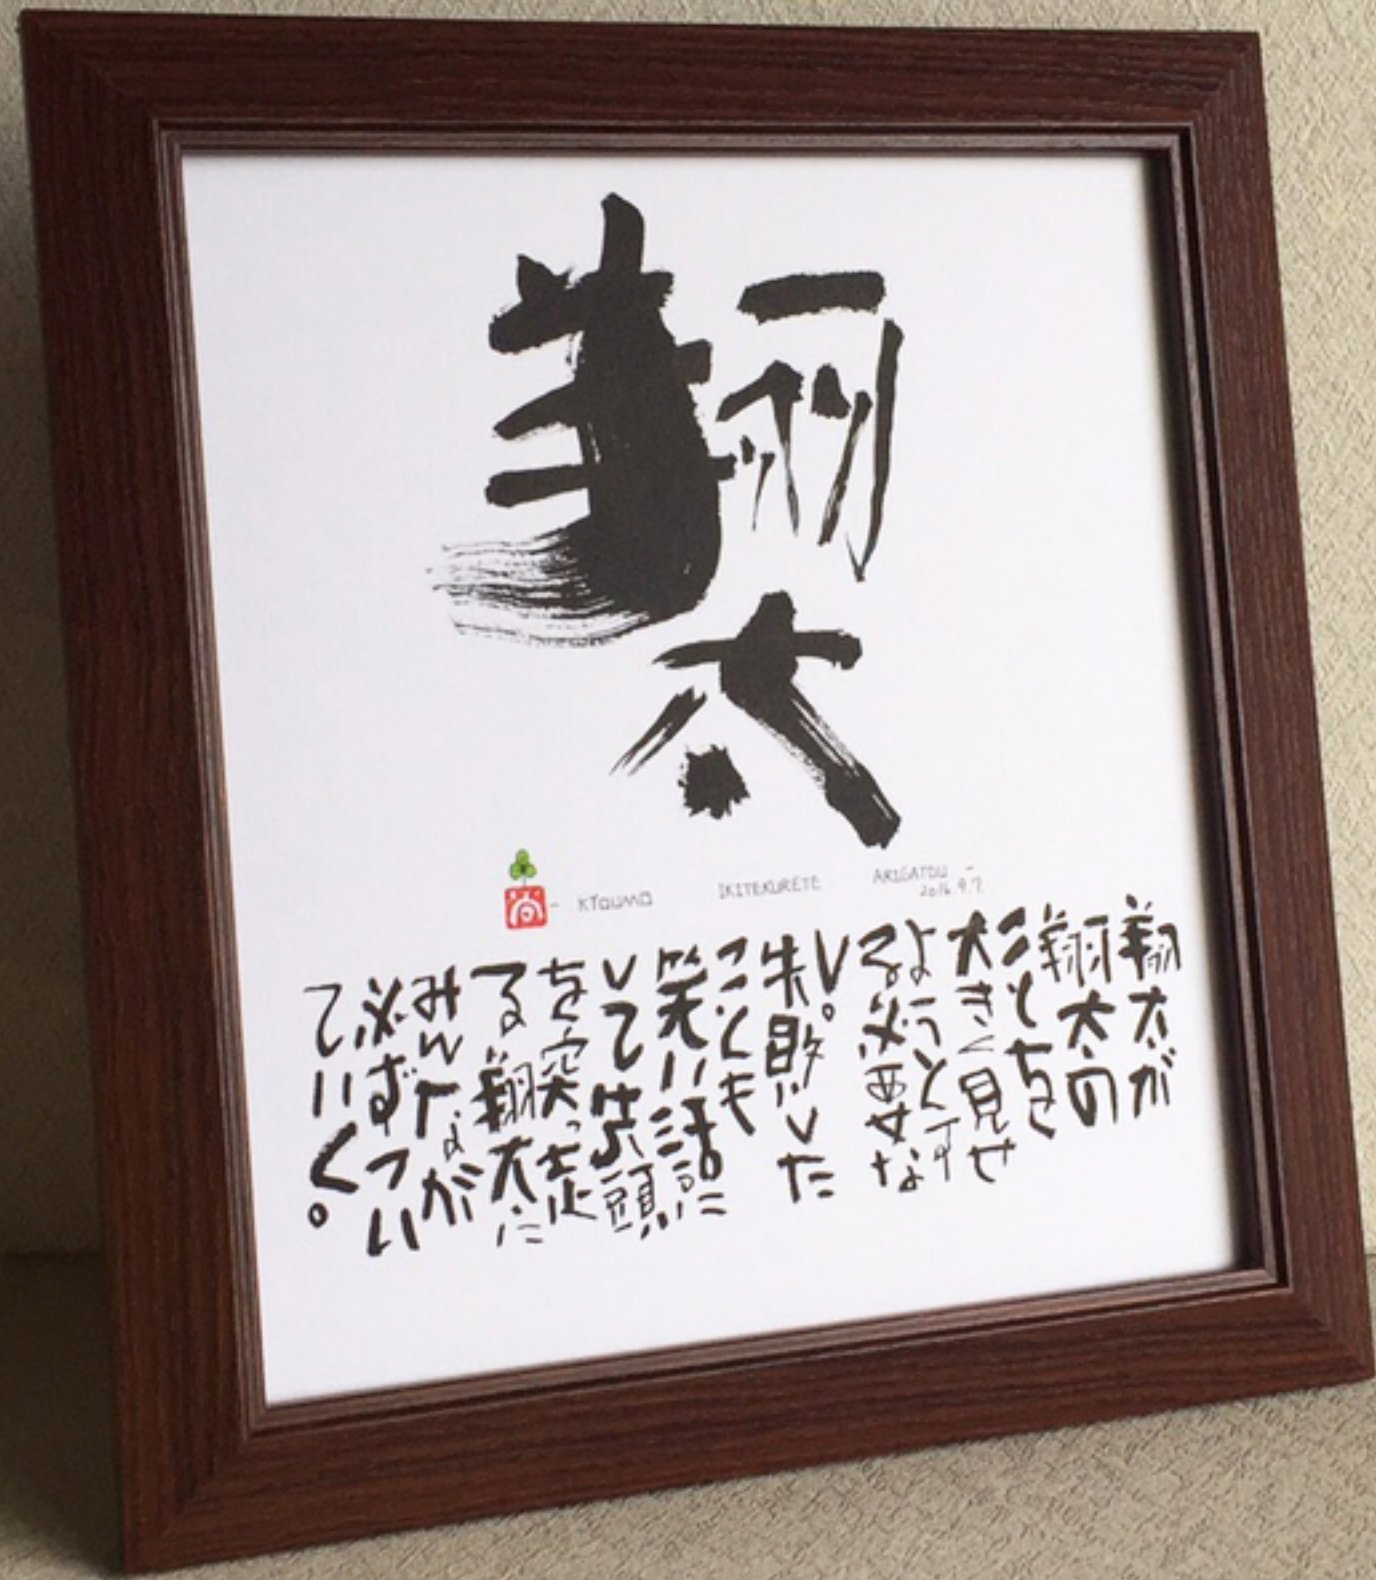 翔太
- KTOUMA IKITEKURETE ARIGATOU -
2016.9.7
翔太が
翔太の
ことを
大きく見せ
ようとす
る必要な
し。
失敗した
ことも
笑い話に
して先頭
を突っ走
る翔太に
みんなが
必ずつい
ていく。